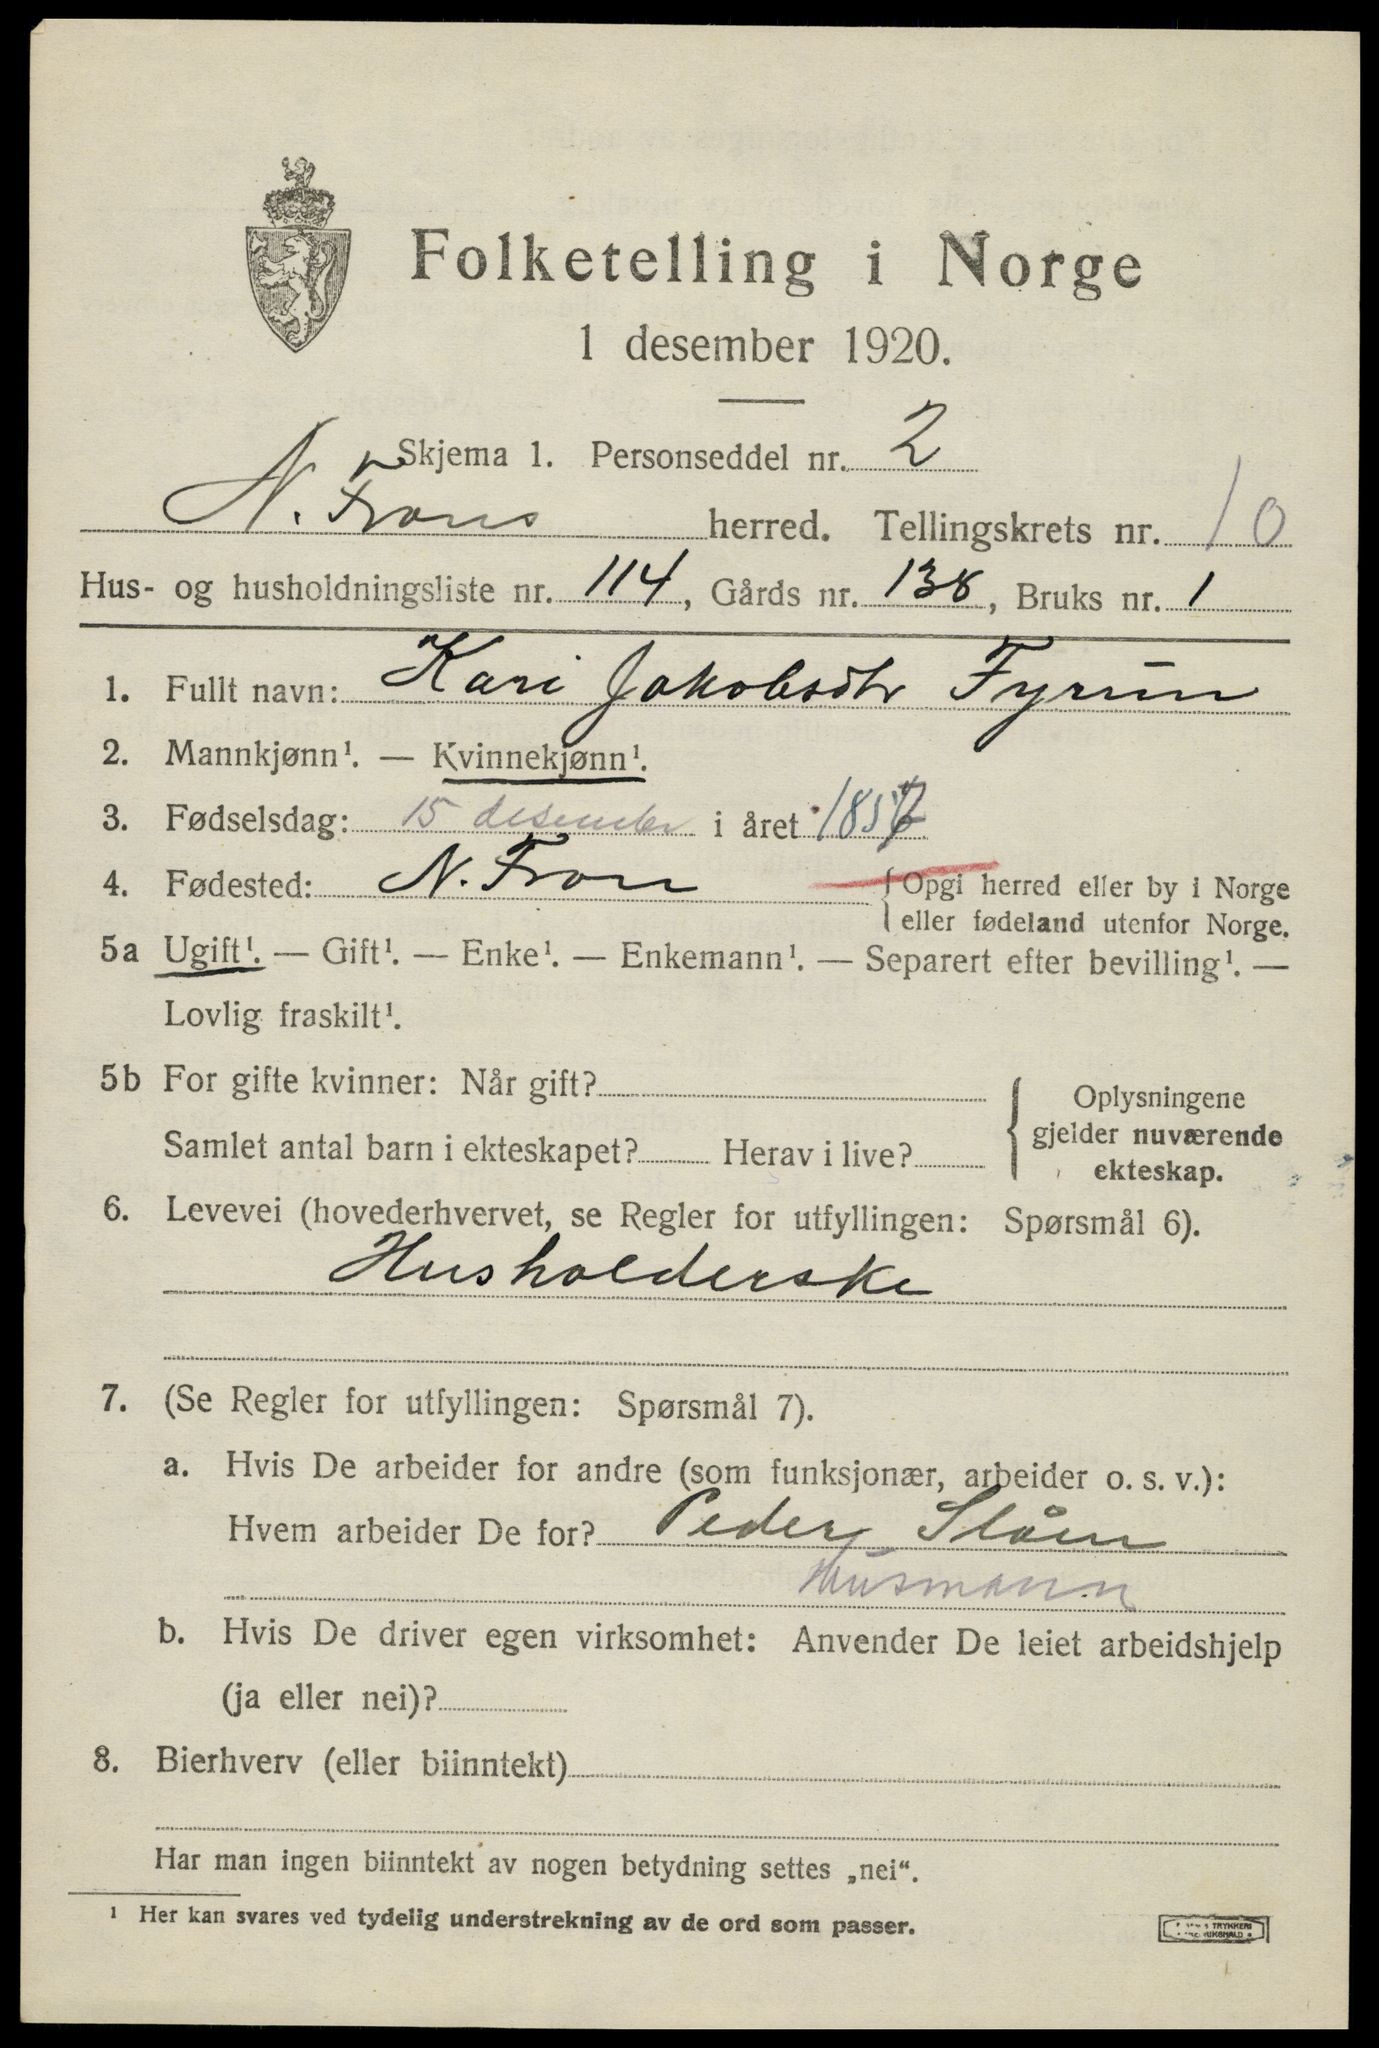 Folketelling i Norge
1 desember 1920.
Skjema 1. Personseddel nr. 2
N. Frons herred. Tellingskrets nr. 10
Hus- og husholdningsliste nr. 114, Gårds nr. 138, Bruks nr. 1
1. Fullt navn: Kari Jakobsdtr Fyrün
2. Mannkjønn¹. — Kvinnekjønn¹.
3. Fødselsdag: 15 desember i året 1857
4. Fødested: N. Fron { Opgi herred eller by i Norge
eller fødeland utenfor Norge.
5a Ugift¹. — Gift¹. — Enke¹. — Enkemann¹. — Separert efter bevilling¹. —
Lovlig fraskilt¹.
5b For gifte kvinner: Når gift?
Samlet antal barn i ekteskapet? Herav i live?
Oplysningene
gjelder nuværende
ekteskap.
6. Levevei (hovederhvervet, se Regler for utfyllingen: Spørsmål 6).
Husholderske
7. (Se Regler for utfyllingen: Spørsmål 7).
a. Hvis De arbeider for andre (som funksjonær, arbeider o. s. v.):
Hvem arbeider De for? Peder Slåen
Husmann
b. Hvis De driver egen virksomhet: Anvender De leiet arbeidshjelp
(ja eller nei)?
8. Bierhverv (eller biinntekt)
Har man ingen biinntekt av nogen betydning settes „nei“.
¹ Her kan svares ved tydelig understrekning av de ord som passer.